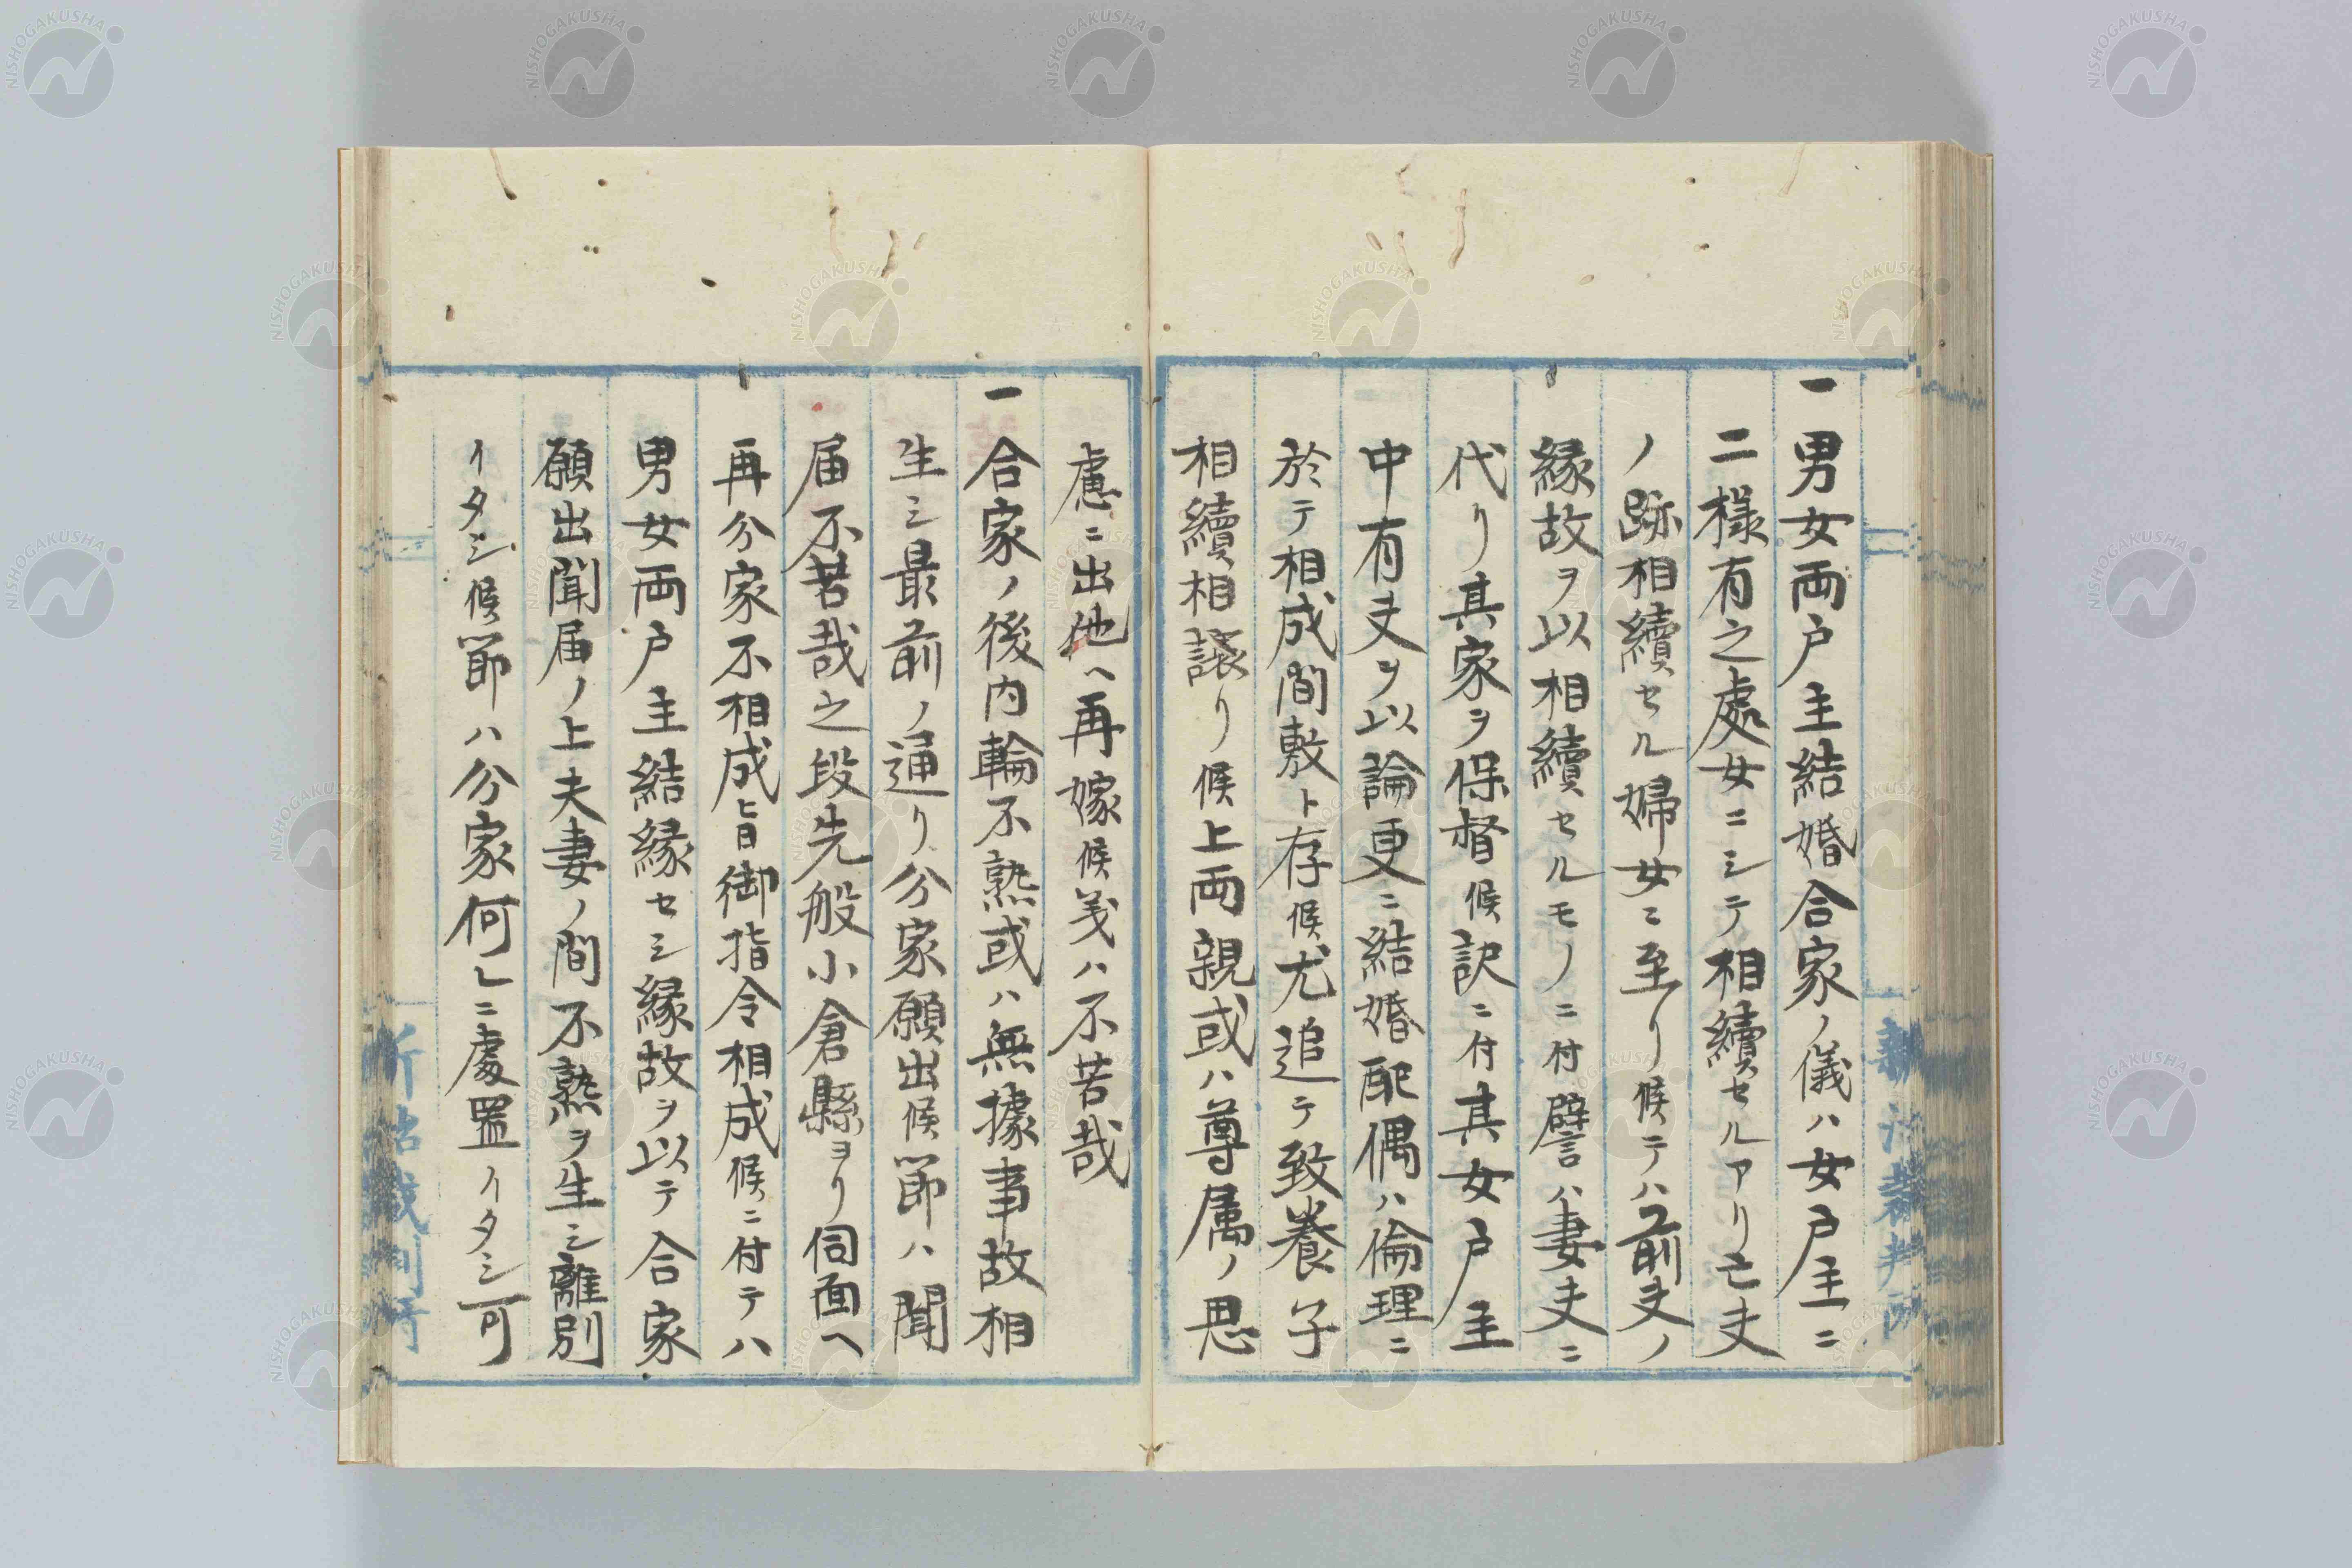 一男女両戸主結婚合家ノ儀ハ女戸主ニ
二様有之處女ニシテ相續セルアリ亡夫
ノ跡相續セル婦女ニ至リ候テハ前夫ノ
縁故ヲ以相續セルモノニ付譬ハ妻夫ニ
代リ其家ヲ保督候訳ニ付其女戸主
中有夫ヲ以論更ニ結婚配偶ハ倫理ニ
於テ相成間敷ト存候尤追テ致養子
相續相譲リ候上両親或ハ尊属ノ思
慮ニ出他ヘ再嫁候義ハ不苦哉
一合家ノ後内輪不熟或ハ無據事故相
生シ最前ノ通リ分家願出候節ハ聞
届不苦哉之段先般小倉縣ヨリ伺面ヘ
再分家不相成旨御指令相成候ニ付テハ
男女両戸主結縁セシ縁故ヲ以テ合家
願出聞届ノ上夫妻ノ間不熟ヲ生シ離別
イタシ候節ハ分家何レニ處置イタシ可
新治裁判所
新治裁判所
NISHOGAKUSHA